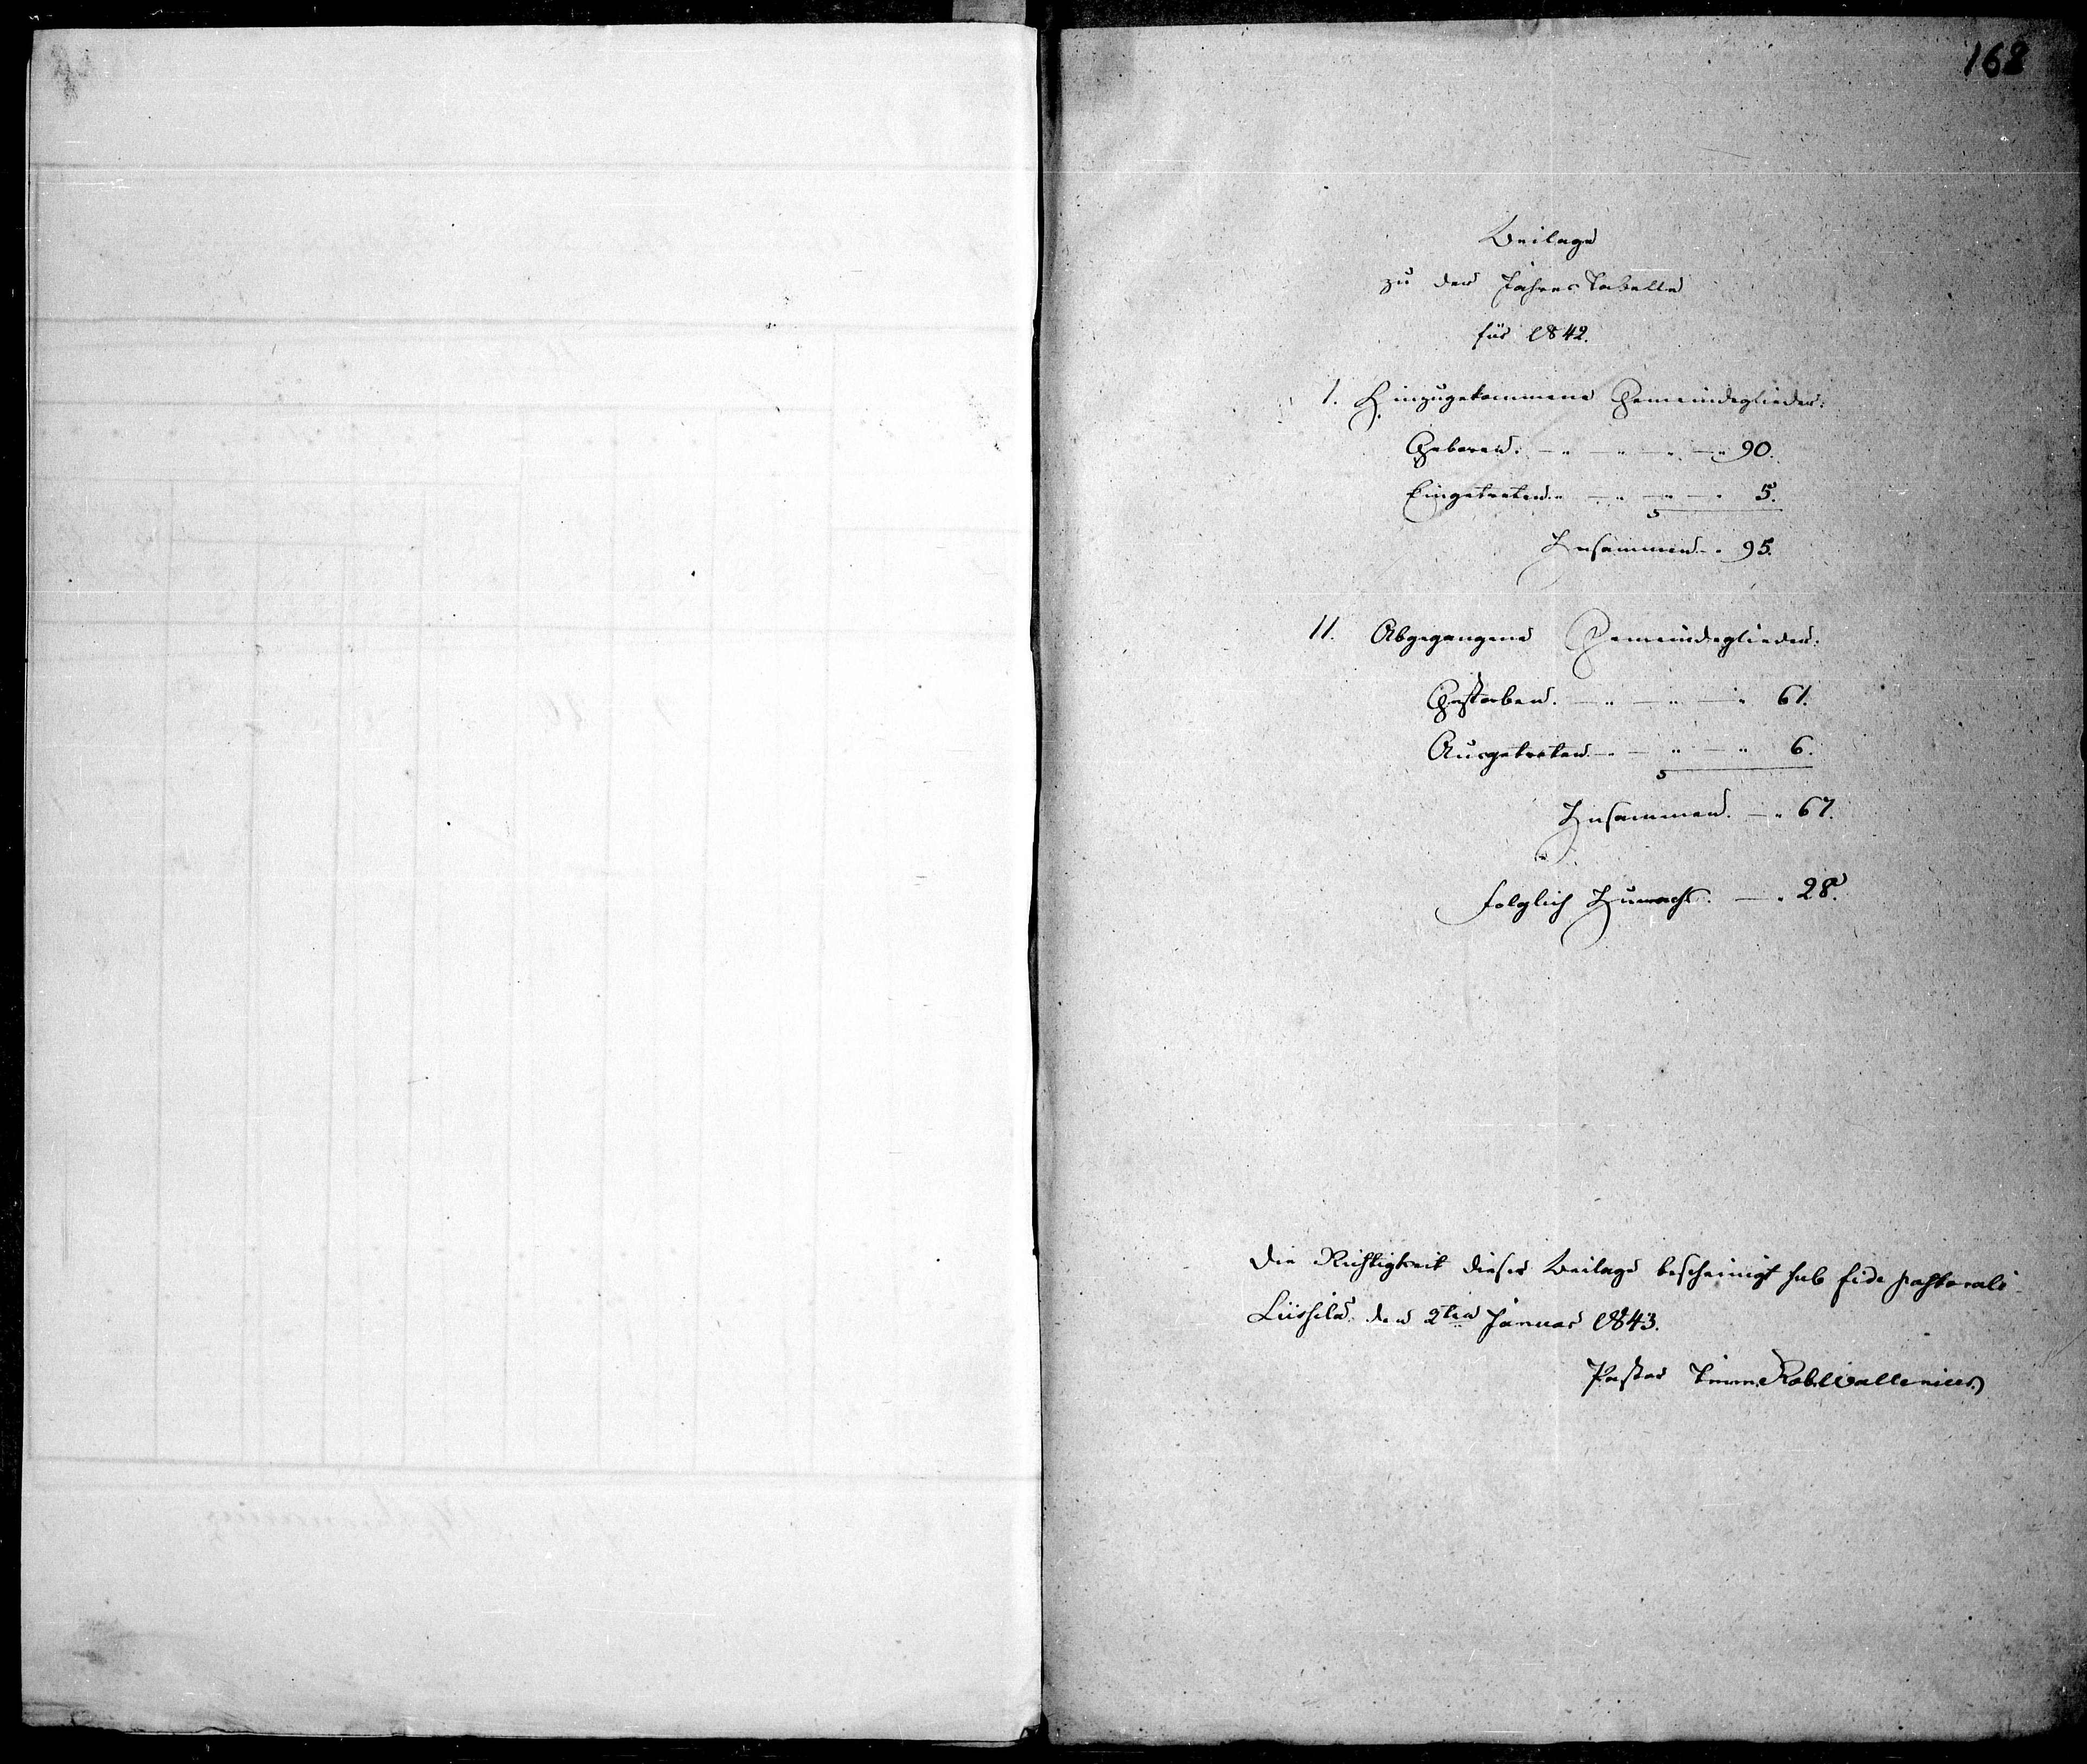 168
Beilage
zu der Jahres Tabelle
für 1842.
1. Hinzugekommene Gemeindeglieder:
Geboren. — " — " — " — " 90.
Eingetreten. " — " — " — " 5.
Zusammen. - " 95.
11. Abgegangene Gemeindeglieder:
Gestorben. — " — " — " 61.
Ausgetreten. — " — " — " 6.
Zusammen. — " 67.
folglich Zuwachs. — " 28.
Die Richtigkeit dieser Beilage bescheinigt sub fide pastorali
den 2ten Januar 1843.
Pastor Rob. Wallenius